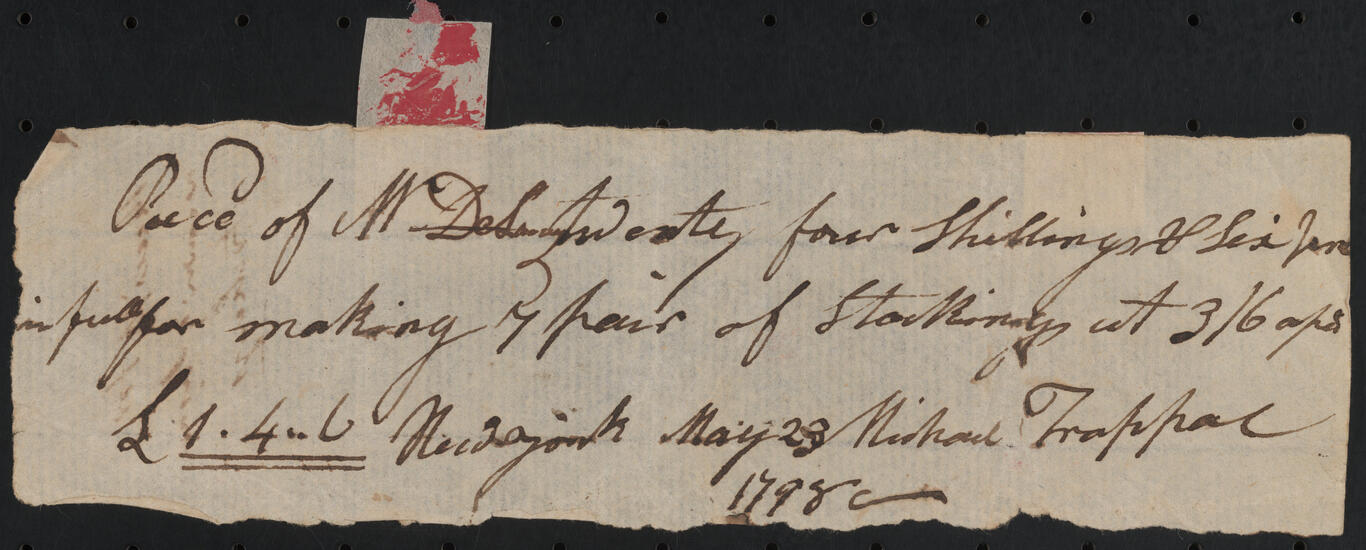 Rece'd of Mr twenty four Shillings & Six
in full for making 7 pair of Stockings at 3/6 a pr
£ 1..4..6 Newyork May 23 Michael Trappal
1798